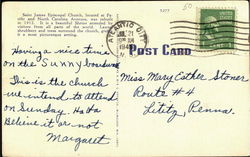 Saint James Episcopal Church, located at Pacific and North Carolina Avenues, was rebuilt in 1912. It is a beautiful Shrine attended by visitors from all parts of the world.
shrubbery and trees surround the church, and in a most picturesque setting.
5277
50
ATLANTIC CITY
JUL 21
POST CARD
Having a nice time
on the Sunny boardwalk
This is the church
we intend to attend
on Sunday. Ha Ha
Believe it or not
Margaret
Miss Mary Esther Stoner
Route #4
Lititz, Penna.